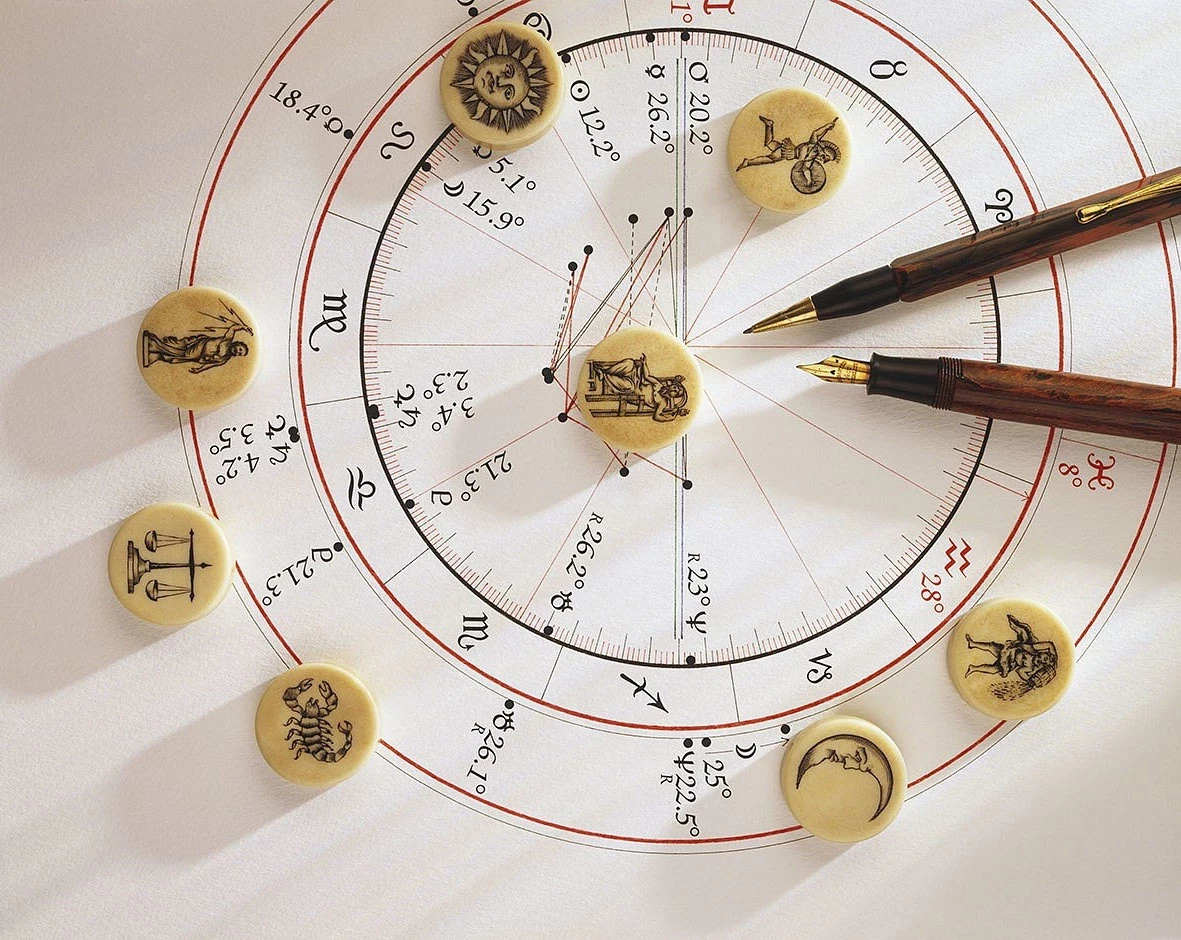 1° ♊
♋
♉
18.4° ♀
♌
☉ 12.2°
☿ 26.2°
♂ 20.2°
5.1°
☽ 15.9°
♈
♍
2.3°
3.4°
♃ ♄
♃ ♄
3.5° 4.2°
♎
♇ 21.3°
♇ 21.3°
R 26.2° ♅
R 23° ♆
♓
8°
♒
28°
♏
♐
♑
♅ 26.1°
R
☽
25°
♆ 22.5°
R